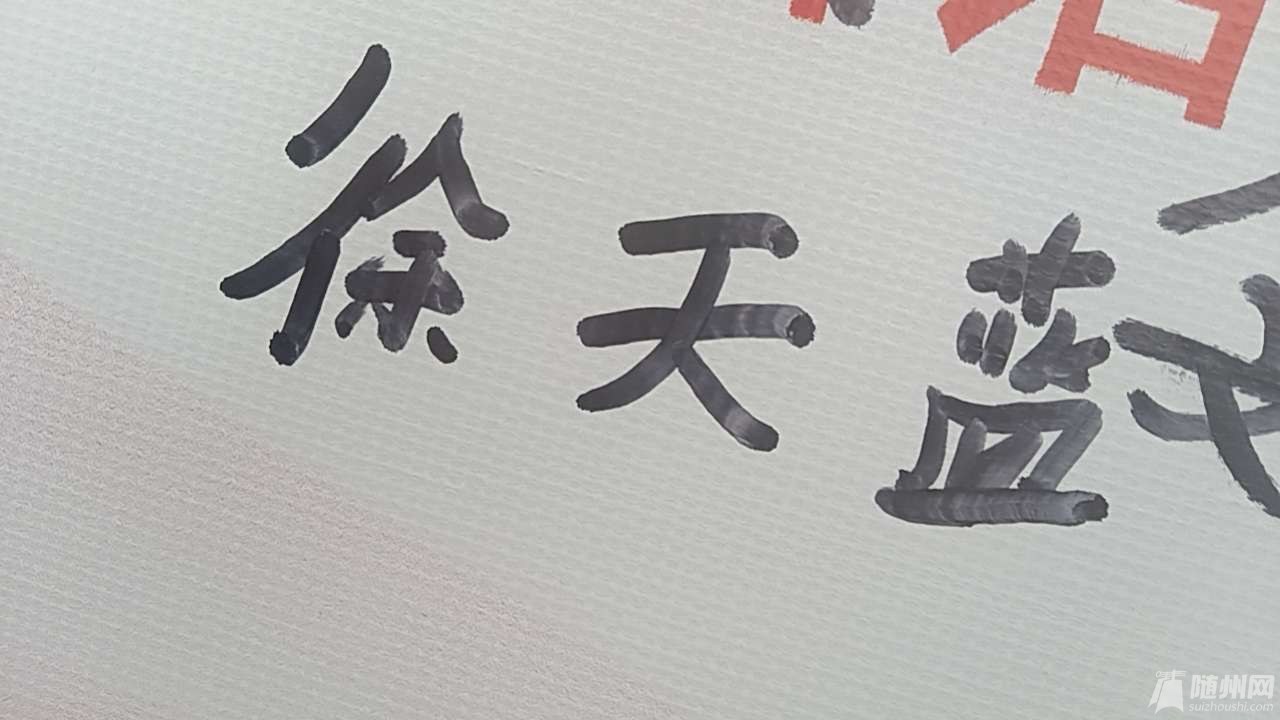 徐天蓝
随州网
suizhoushi.com